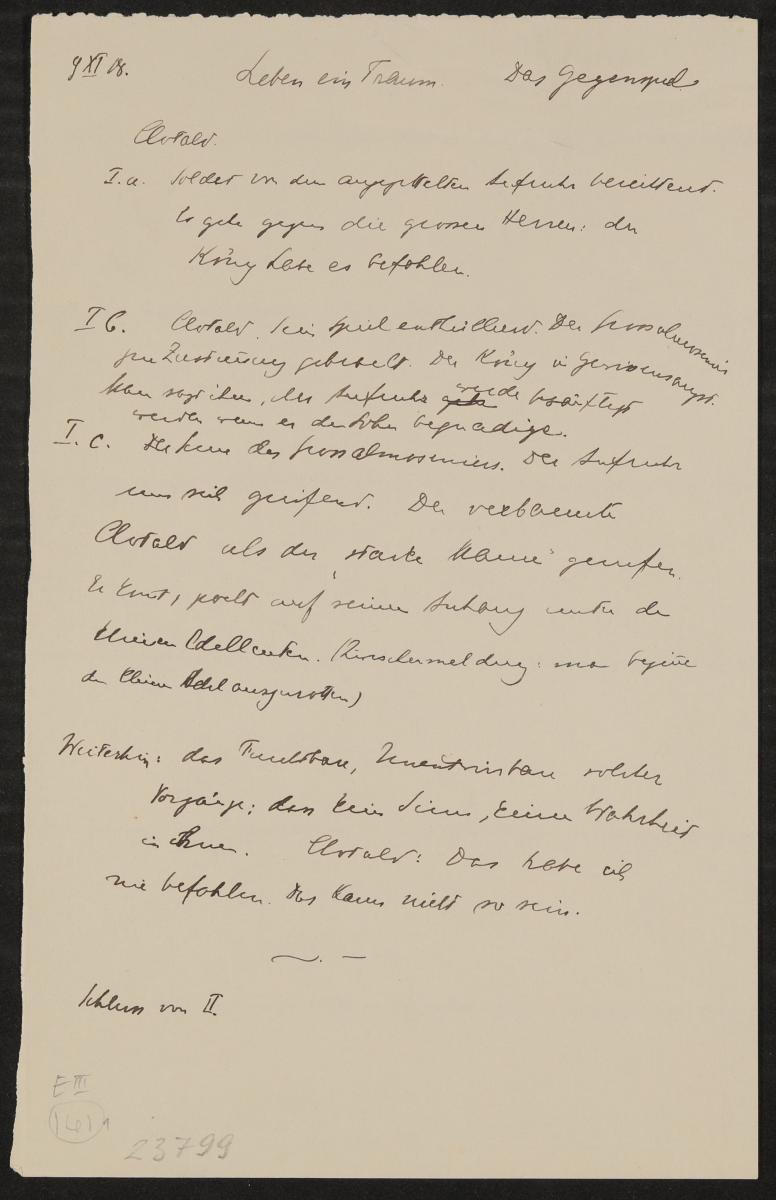 9 XI 18. Leben ein Traum. Das Gegenspiel
Clotald.
I.a. Soldat von dem angezettelten Aufruhr berichtend.
Es gehe gegen die grossen Herren: der
König habe es befohlen.
I b. Clotald sein Spiel enthüllend. Der Grossalmosenier
zur Zustimmung gebracht. Der König in Gewissensangst.
Man sagt ihm, der Aufruhr gehe werde besänftigt
werden wenn er den Sohn begnadige.
I. c. Herkunft des Grossalmoseniers. Der Aufruhr
um sich greifend. Der verbannte
Clotald als der "starke Mann" gerufen.
Er kommt, pocht auf seinen Anhang unter den
kleinen Edelleuten. (Zwischenmeldung: man beginne
den kleinen Adel auszurotten)
Weiterhin: das Furchtbare, Unentrinnbare solcher
Vorgänge; dass kein Sinn, keine Wahrheit
in ihnen. Clotald: Das habe ich
nie befohlen. Das kann nicht so sein.
Schluss von II.
E III
141
23799